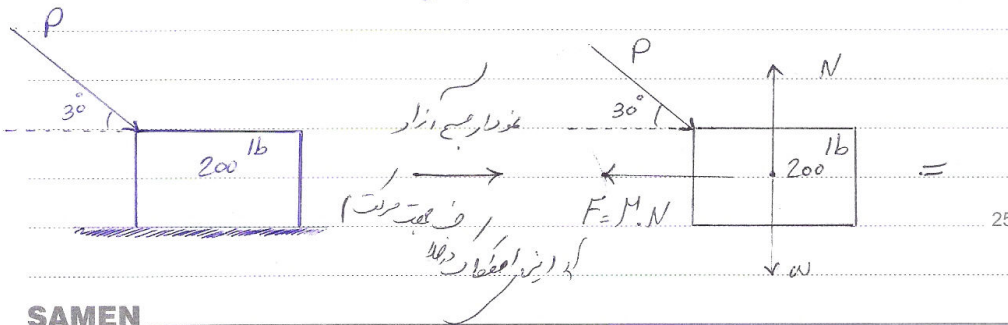 P
30°
200 lb
نمودار جسم آزاد
(فرض جهت حرکت)
P
30°
N
200 lb
F = μ.N
=
W
25
SAMEN